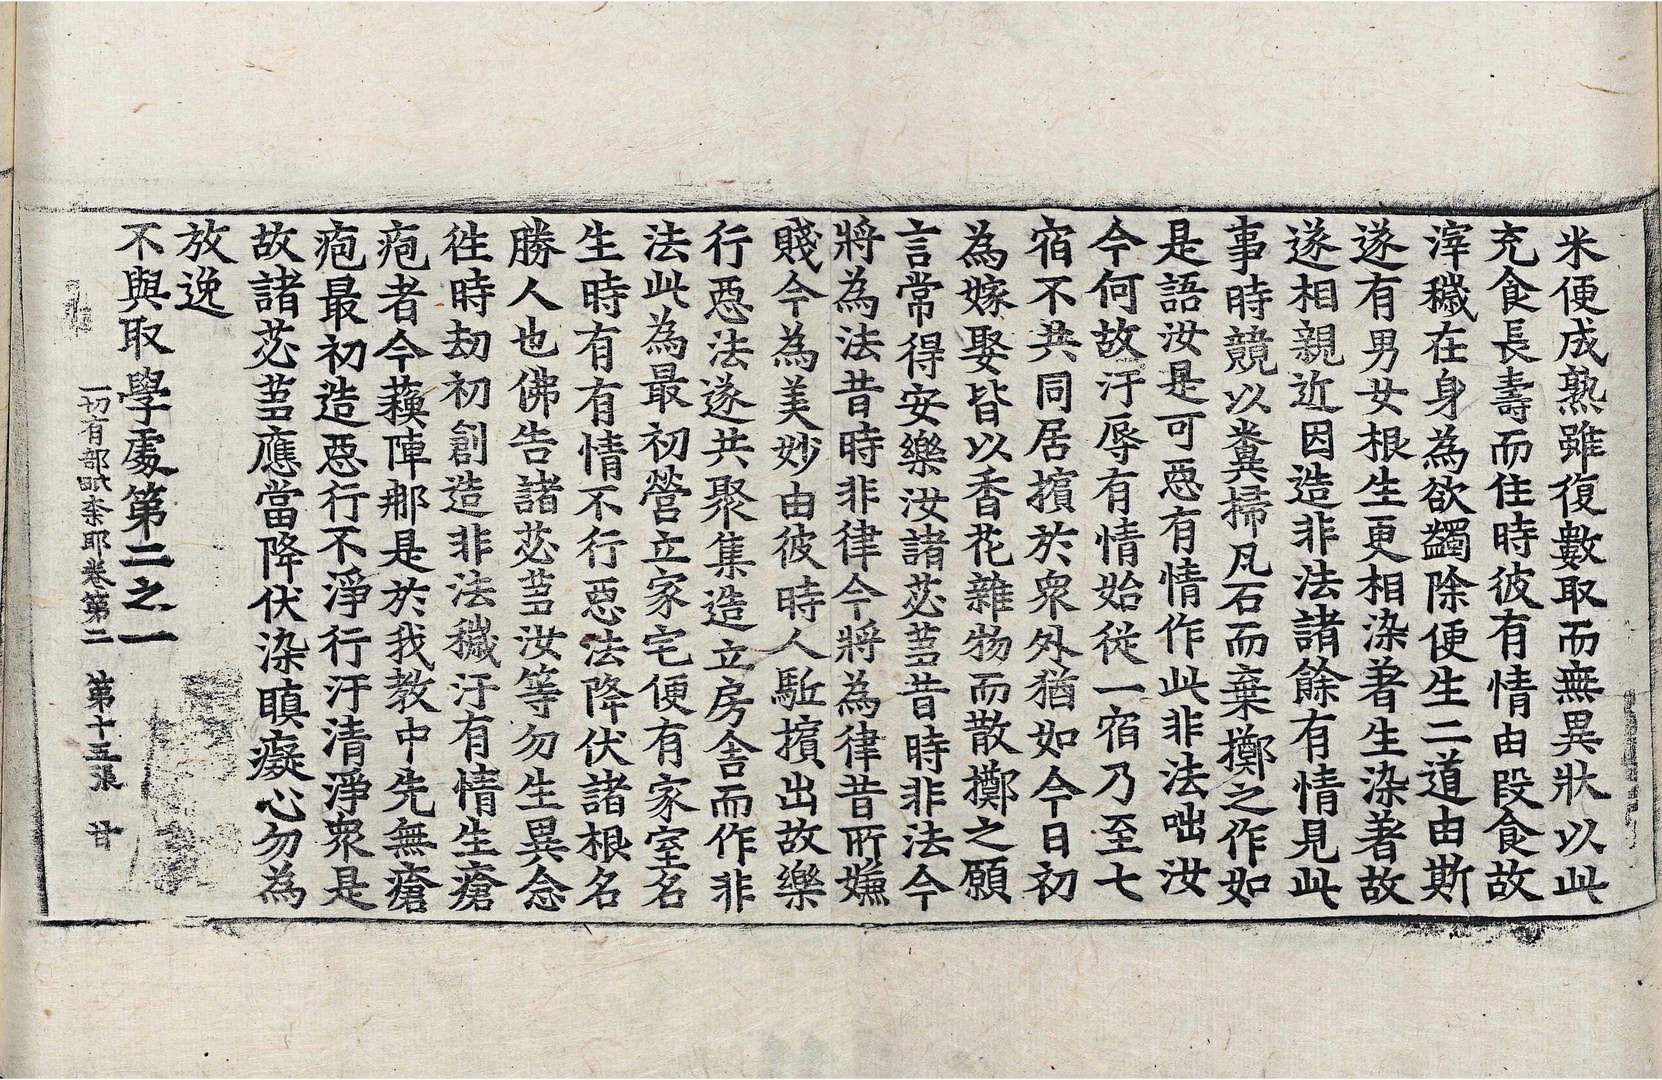 米便成熟雖復數取而無異狀以此
充食長壽而住時彼有情由段食故
滓穢在身為欲蠲除便生二道由斯
遂有男女根生更相染著生染著故
遂相親近因造非法諸餘有情見此
事時競以糞掃凡石而棄擲之作如
是語汝是可惡有情作此非法咄汝
今何故汙辱有情始從一宿乃至七
宿不共同居擯於衆外猶如今日初
為嫁娶皆以香花雜物而散擲之願
言常得安樂汝諸苾芻昔時非法今
將為法昔時非律今將為律昔所嫌
賤今為美妙由彼時人駈擯出故樂
行惡法遂共聚集造立房舍而作非
法此為最初營立家宅便有家室名
生時有有情不行惡法降伏諸根名
勝人也佛告諸苾芻汝等勿生異念
往時劫初創造非法穢汙有情生瘡
疱者今蘇陣那是於我教中先無瘡
疱最初造惡行不淨行汙清淨衆是
故諸苾芻應當降伏染瞋癡心勿為
放逸
不與取學處第二之一
一切有部毗奈耶卷第二　第十五張　廿